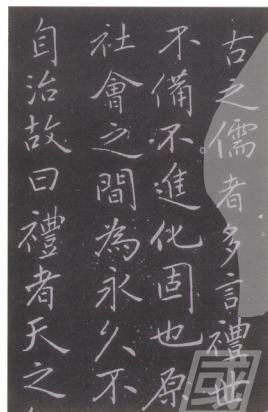 古之儒者多言禮世
不備不進化固也原
社會之間為永久不
自治故曰禮者天之
國